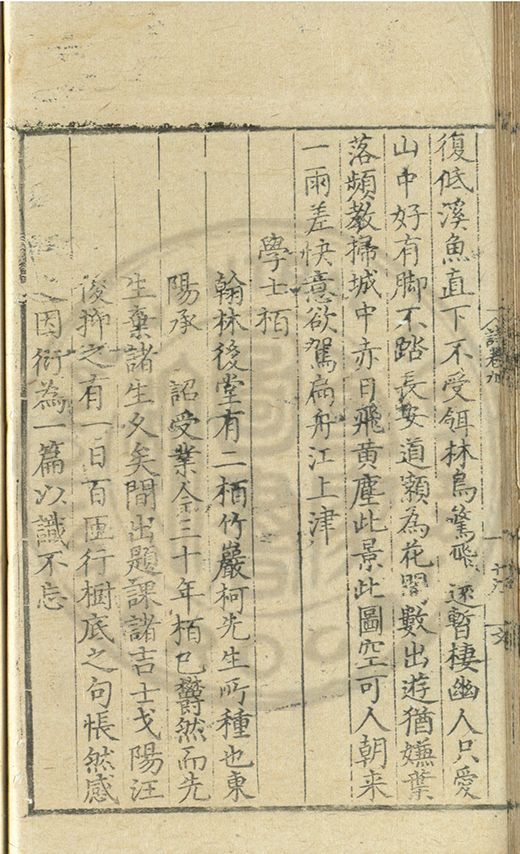 復低溪魚直下不受餌林鳥驚飛還暫棲幽人只愛
山中好有脚不踏長安道嬾為花開數出遊猶嫌葉
落頻教掃城中赤日飛黃塵此景此圖空可人朝来
一雨差快意欲駕扁舟江上津
學士栢
翰林後堂有二栢竹巖柯先生所種也東
陽承 詔受業今三十年栢已欝然而先
生棄諸生久矣間出題課諸吉士戈陽汪
俊抑之有一日百匝行樹底之句悵然感
之因衍為一篇以識不忘